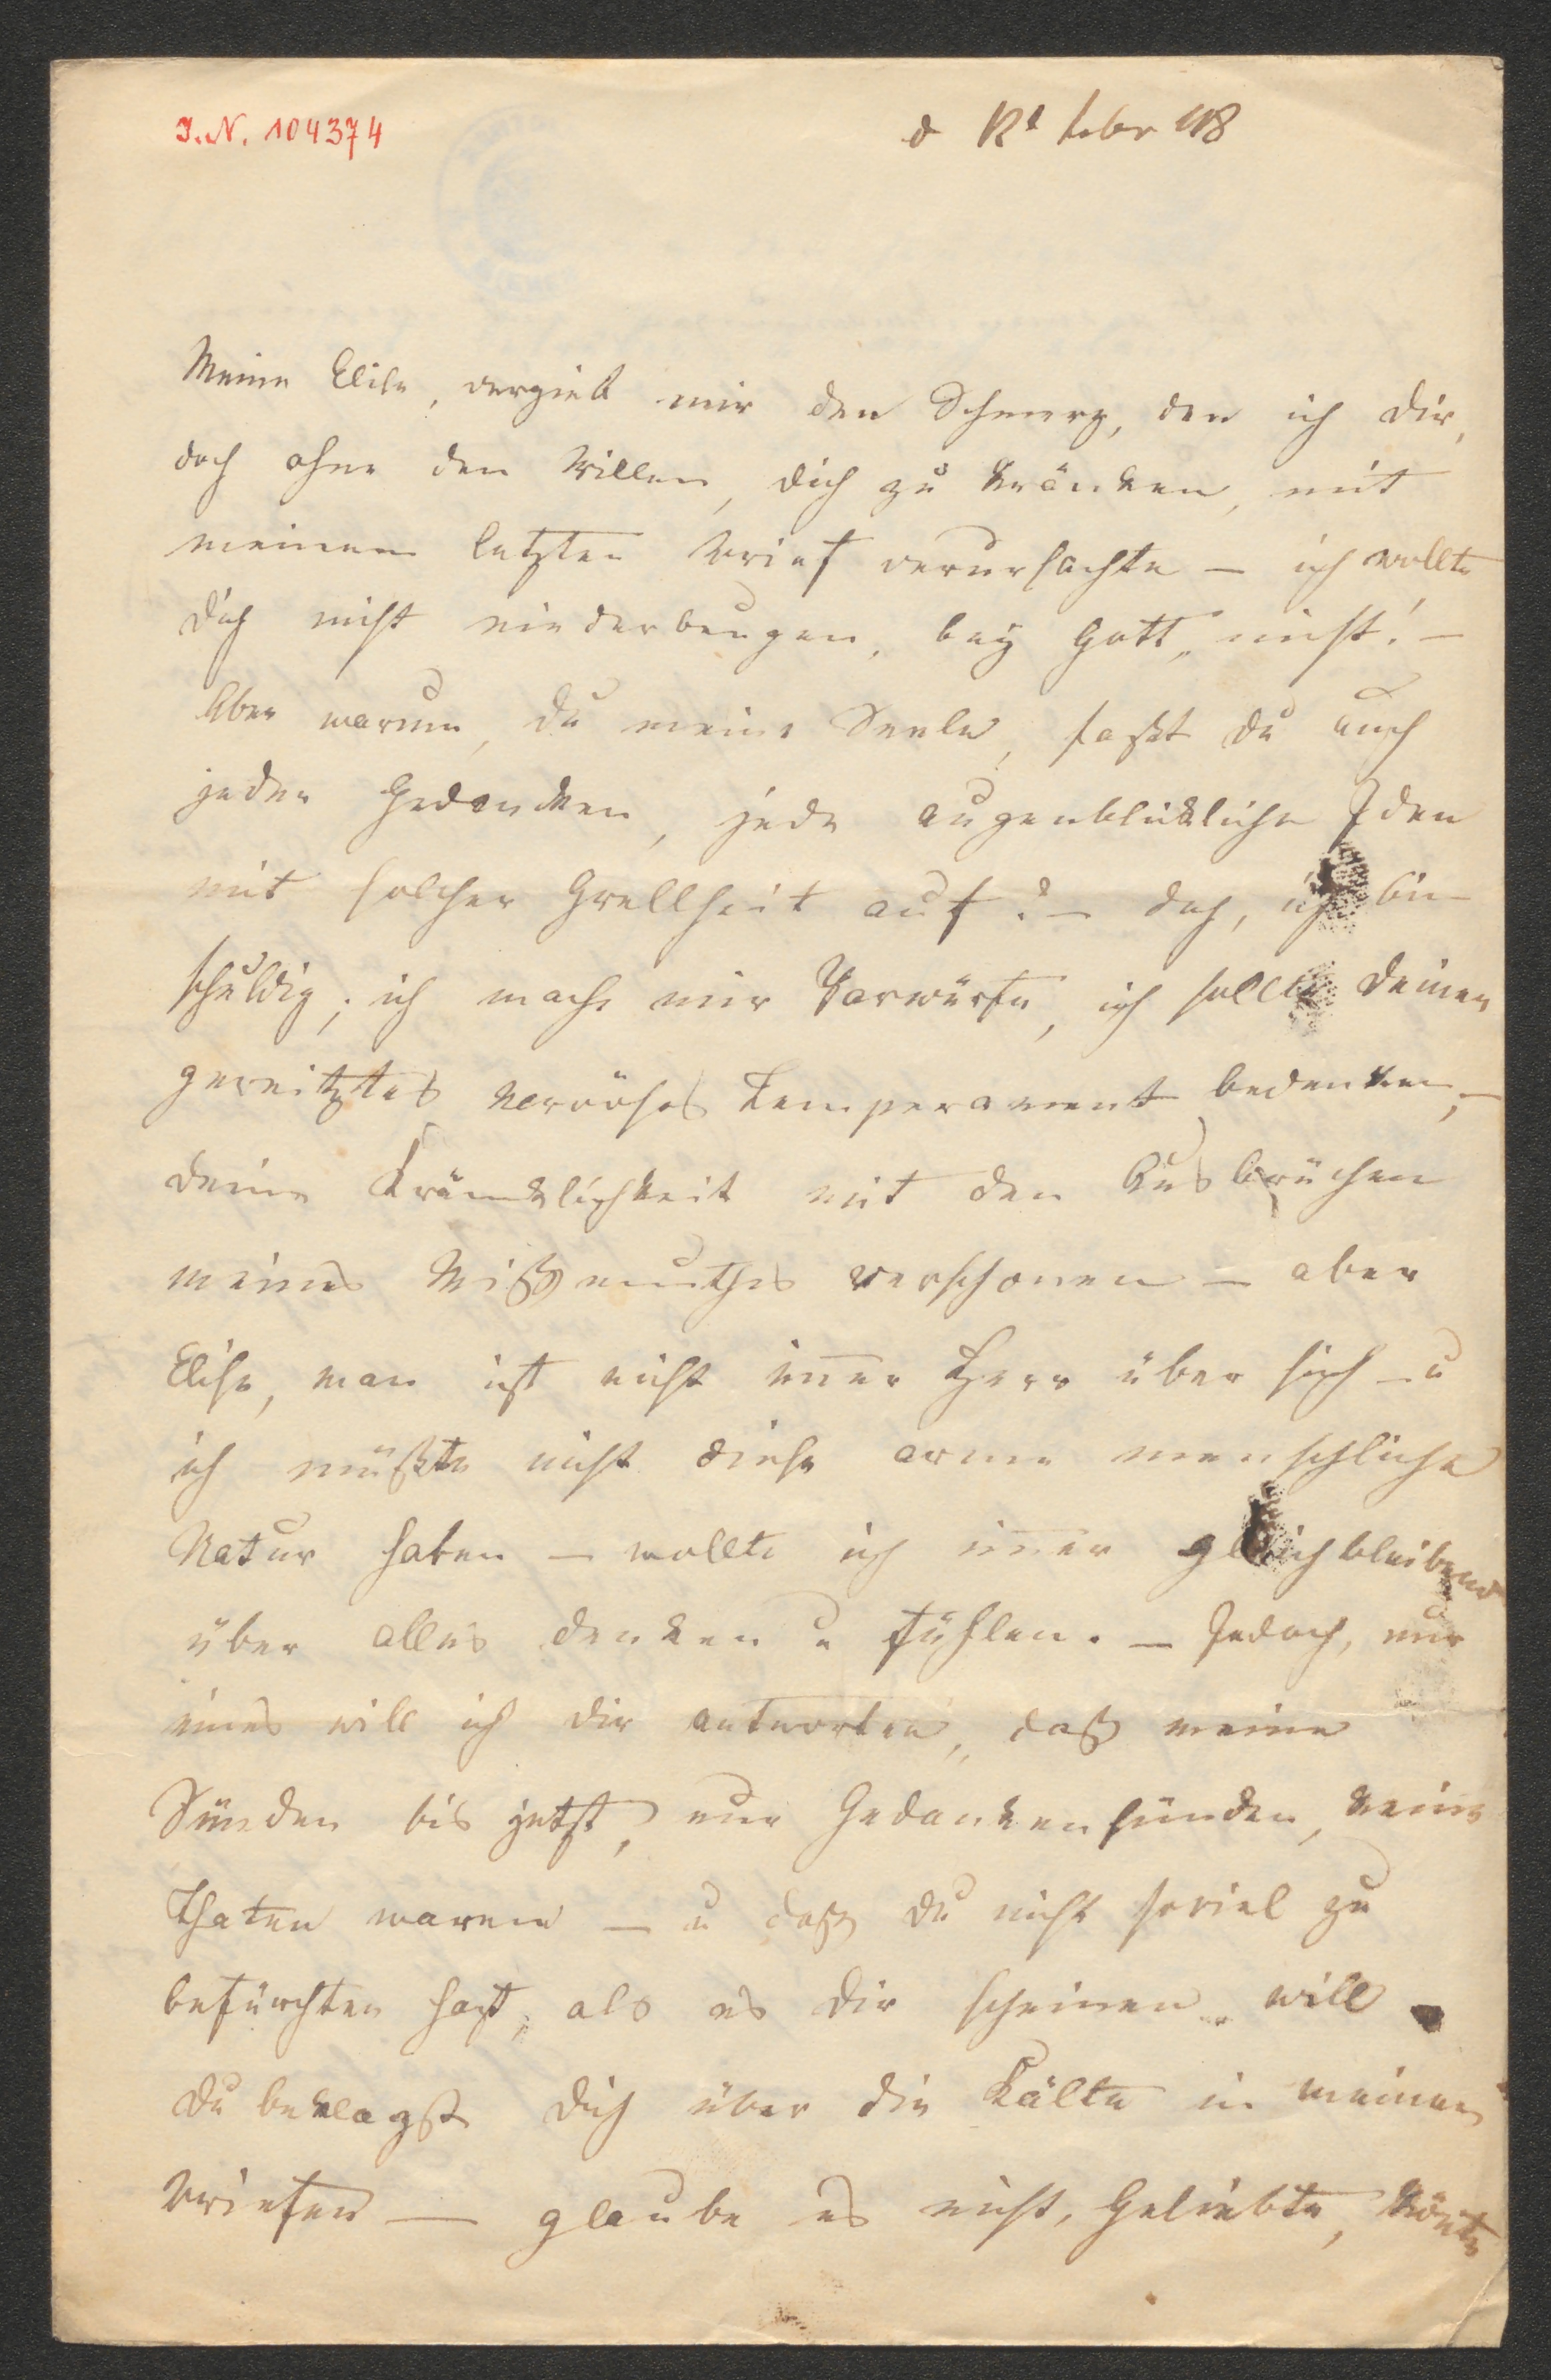 J. N. 104374
d 12t febr 48
Meine Elise, vergieb mir den Schmerz, den ich dir,
doch ohne den Willen, dich zu kränken, mit
meinem letzten Brief verursachte – ich wollte
dich nicht niederbeugen, bey Gott, nicht! –
Aber warum, du meine Seele, faßt du auch
jeden Gedanken, jede augenblickliche Idee
mit solcher Grellheit auf? – doch, ich bin
schuldig; ich mache mir Vorwürfe, ich sollte deinen
gereitztes nervöses Temperament bedenken, –
deine Kränklichkeit mit den Ausbrüchen
meines Mißmuthes verschonen – aber
Elise, man ist nicht im̅er Herr über sich – u
ich müßte nicht diese arme menschliche
Natur haben – wollte ich im̅er gleichbleibend
über alles denken u fühlen. – Jedoch, nur
eines will ich dir antworten, daß meine
Sünden bis jetzt, nur Gedankensünden, keine
Thaten waren – u daß du nicht soviel zu
befürchten hast, als es dir scheinen will
du beklagst dich über die Kälte in meinen
Briefen – glaube es nicht, Geliebte, könte